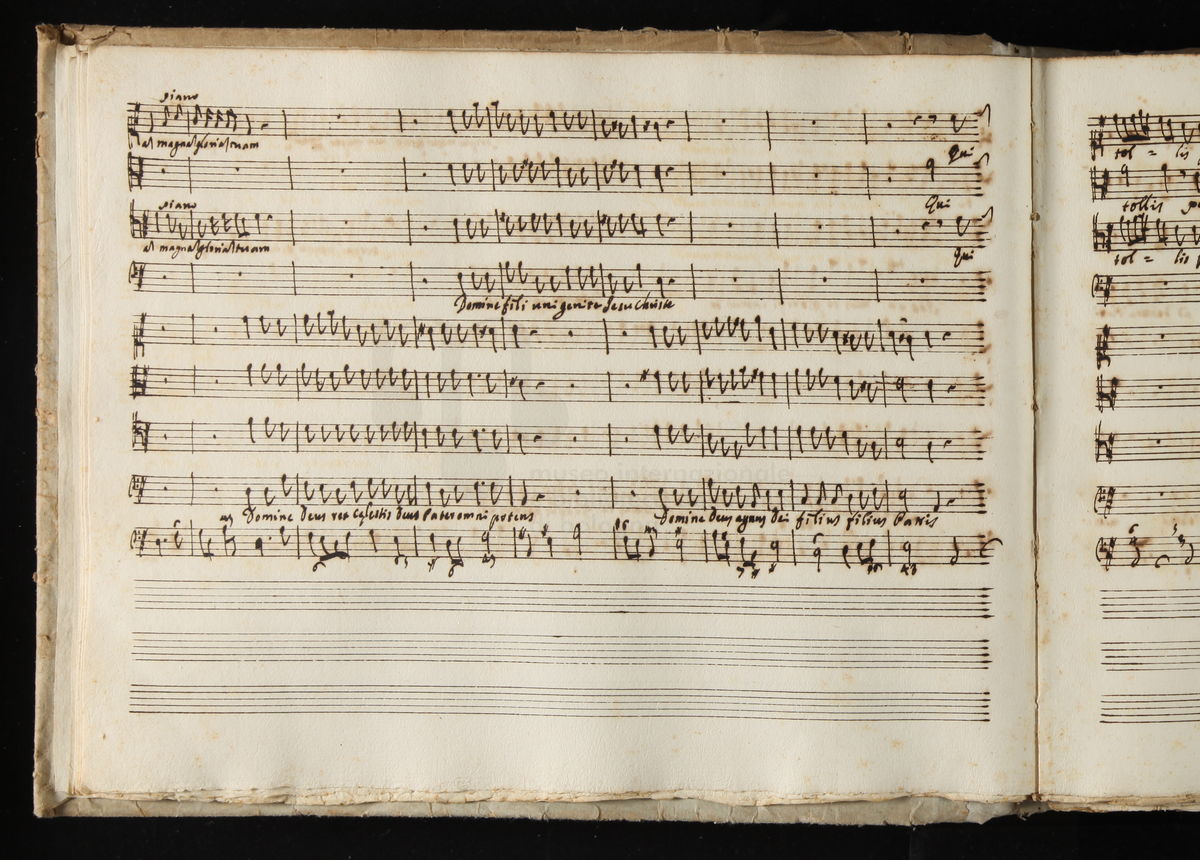 piano
Qui
Qui
piano
Qui
Domine fili unigenite Jesu Christe
Domine Deus rex Celestis Deus Pater omnipotens
Domine Deus agnus Dei filius filius Patris
tol = lis
tollis
tol = lis
museo internazionale